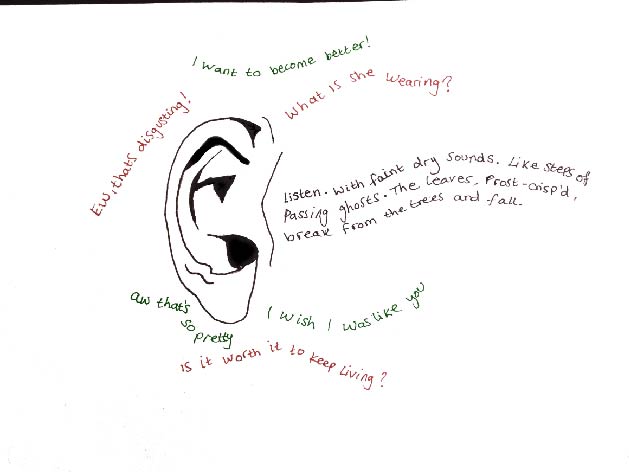 I want to become better!
What is she wearing?
Ew, that's disgusting!
Listen. With faint dry sounds. Like steps of
Passing ghosts. The leaves, Frost-crisp'd,
break from the trees and fall.
aw that's
so pretty
I wish I was like you
Is it worth it to keep living?